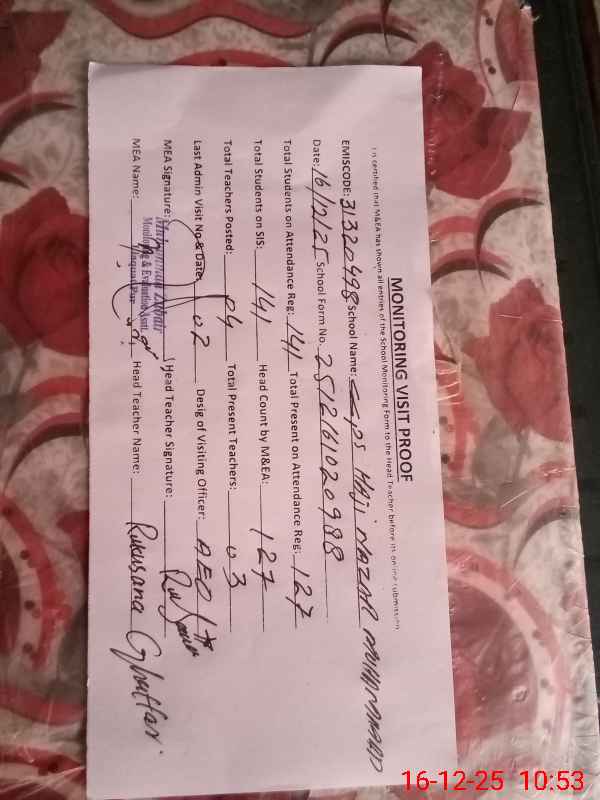 MONITORING VISIT PROOF
It is certified that M&EA has shown all entries of the School Monitoring Form to the Head Teacher before its online submission
EMISCODE: 31320498 School Name: GGPS HAJI NAZAR MUHAMMAD
Date: 16/12/25 School Form No. 2512161020988
Total Students on Attendance Reg: 141 Total Present on Attendance Reg: 127
Total Students on SIS: 141 Head Count by M&EA: 127
Total Teachers Posted: 04 Total Present Teachers: 03
Last Admin Visit No & Date: 02 Desig of Visiting Officer: AEO
MEA Signature: Head Teacher Signature:
Monitoring & Evaluation Asstt.
MEA Name: Head Teacher Name: Rukusana Ghaffar
16-12-25 10:53